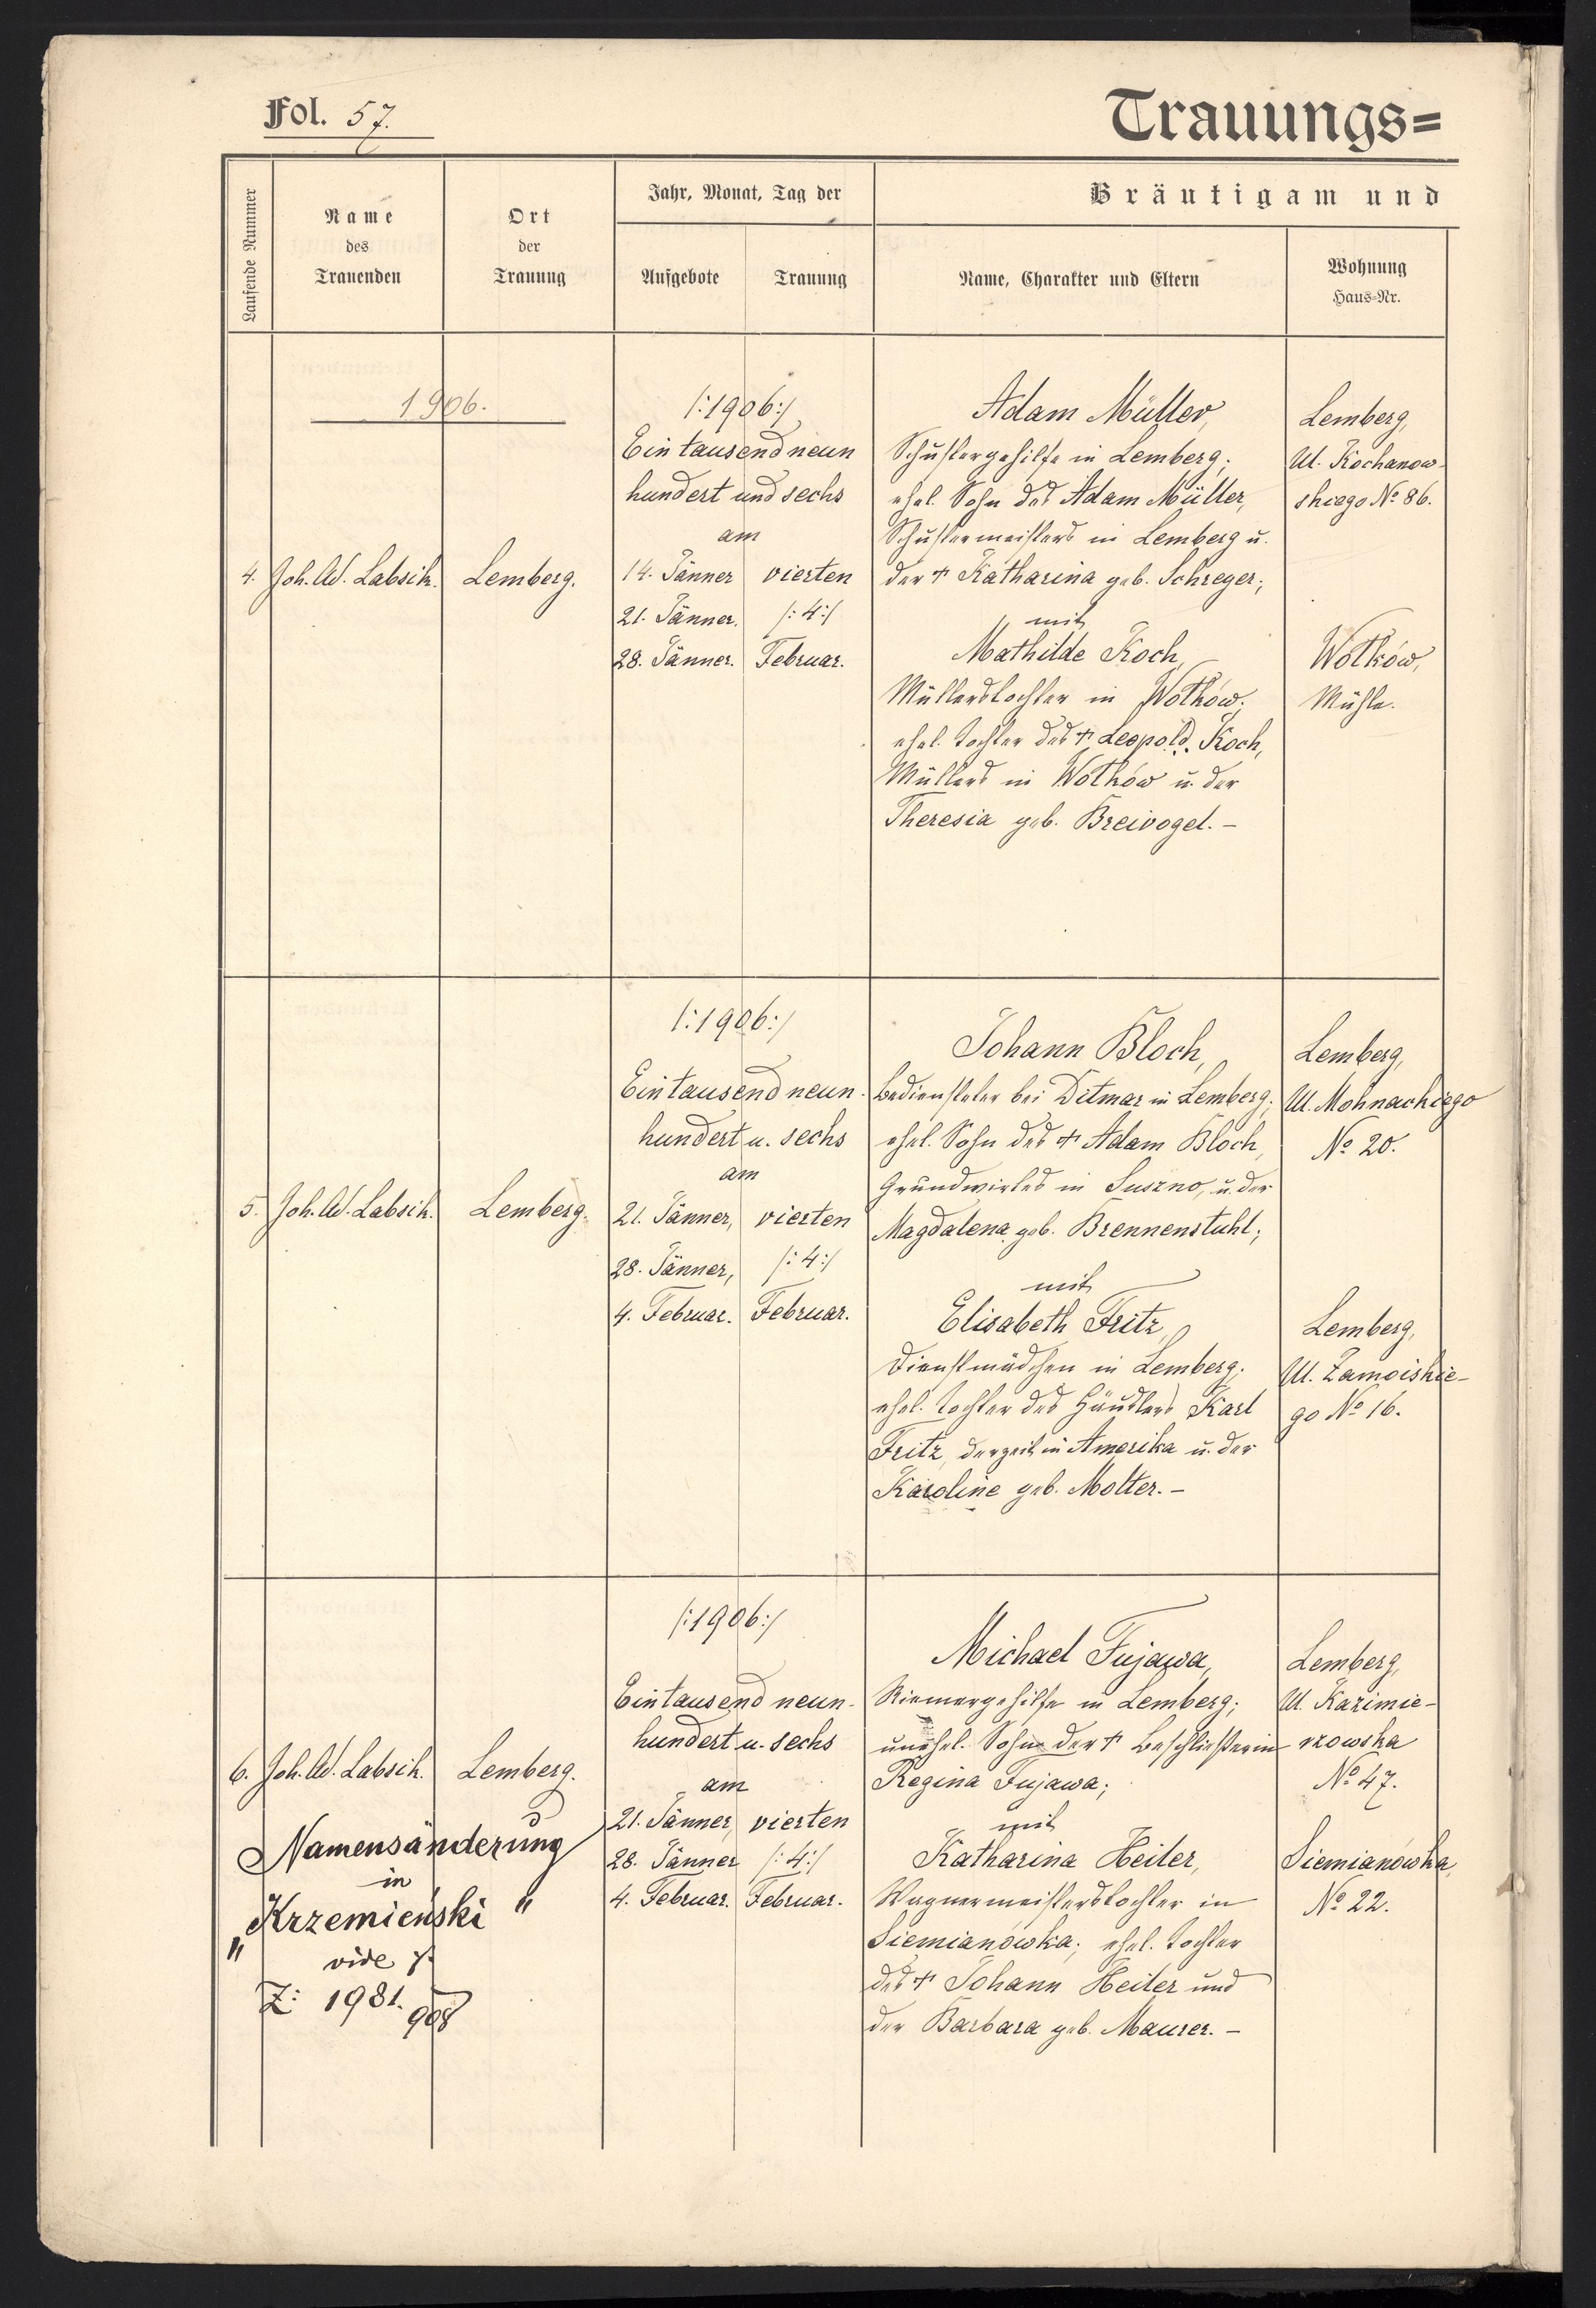 Fol. 57.
Trauungs=
Laufende Nummer
Name
des
Trauenden
Ort
der
Trauung
Jahr, Monat, Tag der
Aufgebote
Trauung
Bräutigam und
Name, Charakter und Eltern
Wohnung
Haus-Nr.
1906.
4.
Joh. Ad. Labsik.
Lemberg.
/:1906:/
Ein tausend neun
hundert und sechs
am
14. Jänner
21. Jänner.
28. Jänner.
vierten
/:4:/
Februar.
Adam Müller,
Schustergehilfe in Lemberg;
ehel. Sohn des Adam Müller,
Schustermeisters in Lemberg u.
der † Katharina geb. Schreger;
mit
Mathilde Koch,
Müllerstochter in Wołków;
ehel. Tochter des † Leopold Koch,
Müllers in Wołków u. der
Theresia geb. Breivogel. –
Lemberg,
Ul. Kochanow-
skiego No 86.
Wołków,
Mühle.
5.
Joh. Ad. Labsik.
Lemberg.
/:1906:/
Ein tausend neun-
hundert u. sechs
am
21. Jänner,
28. Jänner,
4. Februar.
vierten
/:4:/
Februar.
Johann Bloch,
Bediensteter bei Ditmar in Lemberg;
ehel. Sohn des † Adam Bloch,
Grundwirtes in Suszno, u. der
Magdalena geb. Brennenstuhl;
mit
Elisabeth Fritz,
Dienstmädchen in Lemberg;
ehel. Tochter des Händlers Karl
Fritz, derzeit in Amerika u. der
Karoline geb. Molter. –
Lemberg,
Ul. Mohnackiego
No 20.
Lemberg,
Ul. Zamoiskie-
go No 16.
6.
Joh. Ad. Labsik.
Lemberg.
Namensänderung
in
„Krzemieński"
vide
Z: 1981.
908
/:1906:/
Ein tausend neun-
hundert u. sechs
am
21. Jänner,
28. Jänner
4. Februar.
vierten
/:4:/
Februar.
Michael Fujawa,
Riemergehilfe in Lemberg;
unehel. Sohn der † Beschließerin
Regina Fujawa;
mit
Katharina Heiler,
Wagnermeisterstochter in
Siemianówka; ehel. Tochter
des † Johann Heiler und
der Barbara geb. Maurer. –
Lemberg,
Ul. Kazimie-
rzowska
No 47.
Siemianówka,
No 22.